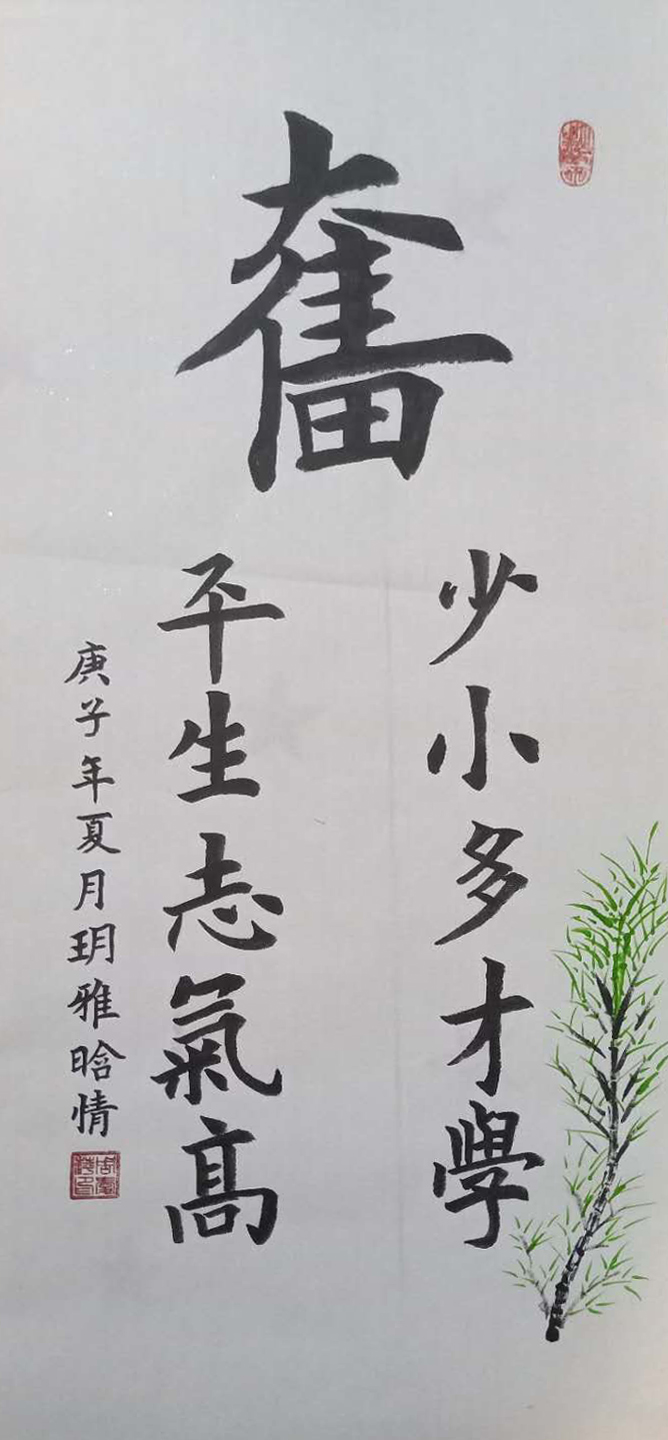 奮
少小多才學
平生志氣高
庚子年夏月玥雅晗情